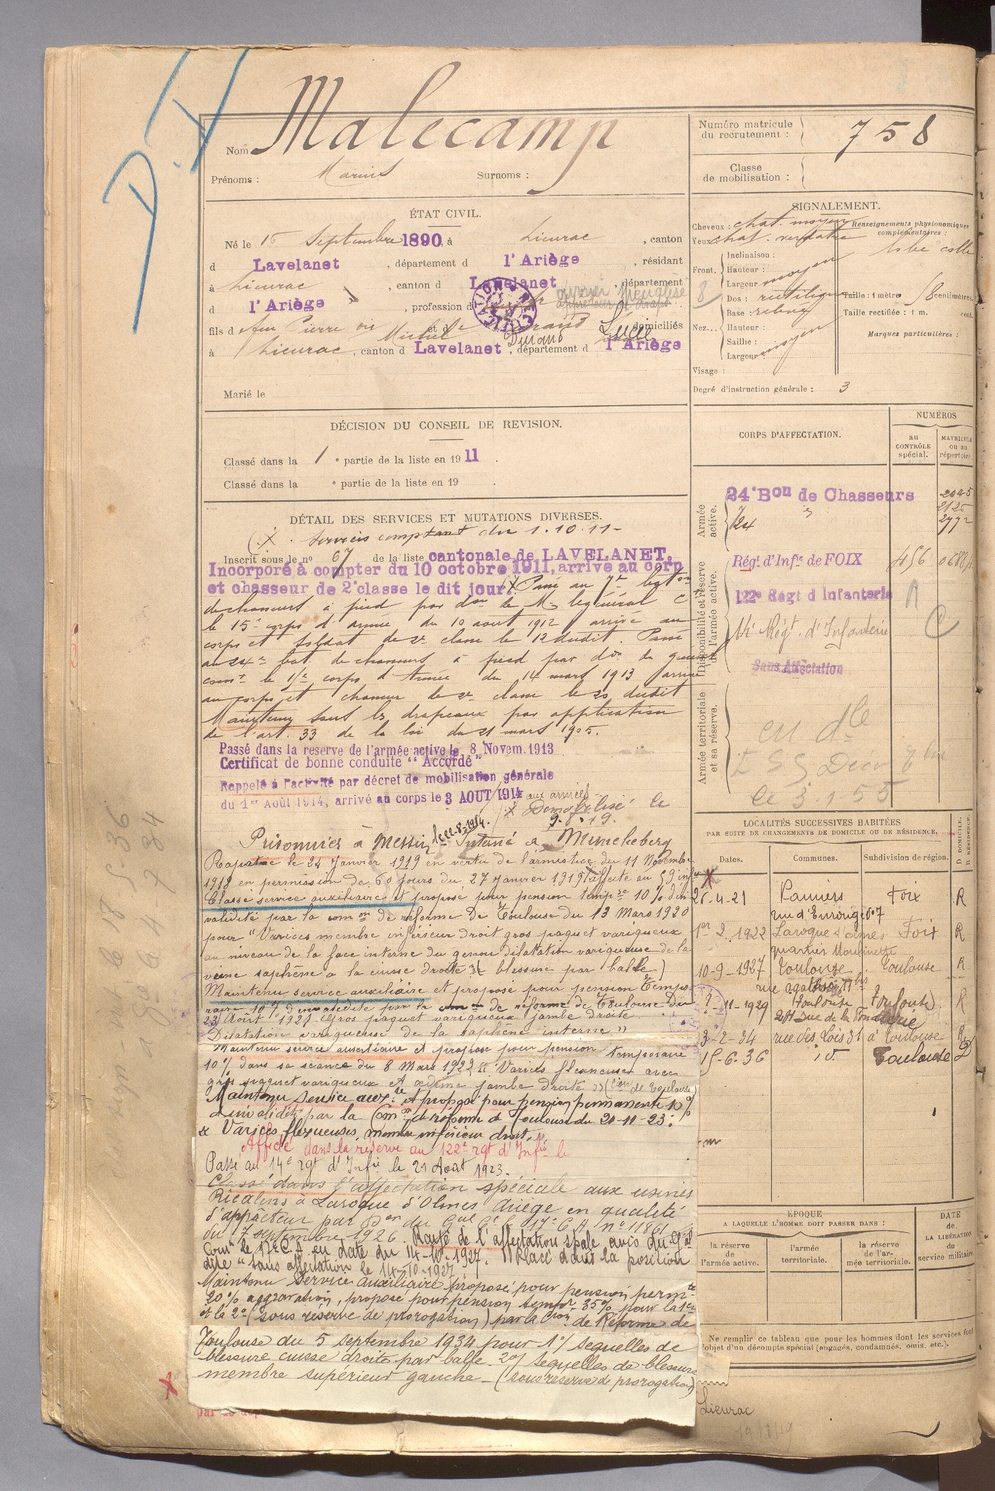 D.I
Nom Malecamp
Prénoms : Marius Surnoms :
Numéro matricule du recrutement : 758
Classe de mobilisation :
ÉTAT CIVIL.
Né le 15 Septembre 1890, à Lieurac, canton
d Lavelanet, département d l'Ariège, résidant
à Lieurac, canton d Lavelanet, département
d l'Ariège, profession d
fils d Jean Pierre ou Michel et d Durand Lucie domiciliés
à Lieurac, canton d Lavelanet, département d l'Ariège
Marié le
SIGNALEMENT.
Cheveux : chat. moyen Renseignements physionomiques complémentaires :
Yeux chat. verdâtre
Front. Inclinaison :
Hauteur :
Largeur moyen
Nez... Dos : rectiligne Taille : 1 mètre centimètres
Base relevé Taille rectifiée : 1 m. cent.
Hauteur : Marques particulières :
Saillie :
Largeur moyen
Visage :
Degré d'instruction générale : 3
DÉCISION DU CONSEIL DE REVISION.
Classé dans la 1e partie de la liste en 1911.
Classé dans la e partie de la liste en 19 .
DÉTAIL DES SERVICES ET MUTATIONS DIVERSES.
(X. services comptant du 1.10.11-
Inscrit sous le no 67 de la liste cantonale de LAVELANET.
Incorporé à compter du 10 octobre 1911, arrivé au corps
et chasseur de 2e classe le dit jour. (X Passé au 7e bataillon
de chasseurs à pied par don de Mr le général Ct
le 15e corps d'armée du 10 aout 1912 arrivé au
corps et soldat de 2e classe le 12 dudit. Passé
au 24e bat. de chasseurs à pied par don du général
comt le 15e corps d'armée du 14 mars 1913 arrivé
au corps et chasseur de 2e classe le 20 dudit
Maintenu sous les drapeaux par application
de l'art. 33 de la loi du 21 mars 1905.
Passé dans la reserve de l'armée active le 8 Novem. 1913
Certificat de bonne conduite "Accordé"
Rappelé à l'activité par décret de mobilisation générale
du 1er Août 1914, arrivé au corps le 3 AOUT 1914 aux armées
X Démobilisé le
9.8.19.
Prisonnier à Messin Interné à Muncheberg
Rapatrié le 24 Janvier 1919 en vertu de l'armistice du 11 Novembre
1918 en permission de 60 jours du 27 janvier 1919 affecté au 59 inf
Classé service auxiliaire et proposé pour pension tempre 10% d'in
validité par la comon de réforme De Toulouse du 13 Mars 1920
pour "Varices membre inférieur droit gros paquet variqueux
au niveau de la face interne du genou dilatation variqueuse de la
veine saphène à la cuisse droite blessure par balle)
Maintenu service auxiliaire et proposé pour pension tempo
raire 10% d'invalidité par la comon de réforme de Toulouse du
23 Août 1921 (gros paquet variqueux jambe droite
Dilatation variqueuse de la saphène interne"
Maintenu service auxiliaire et proposé pour pension temporaire
10% dans sa séance du 8 Mars 1922 "Varices flexueuses avec
gros paquet variqueux et œdème jambe droite" (Con de Toulouse
Maintenu service auxre et proposé pour pension permanente 10%
d'invalidité par la Comon de réforme de Toulouse du 20-11-23.
Varices flexueuses, membre inférieur droit."
Affecté dans la réserve au 122e rgt d'Infie le
Passé au 14e rgt d'Infie le 21 Août 1923.
Classé dans l'affectation spéciale aux usines
Ricalens à Laroque d'Olmes Ariège en qualité
d'apprêteur par Don du Gal Ct le 17e C.A. no 11861
du 17 septembre 1926. Rayé de l'affectation spale avis du Gal
Comt le 17e C.A. en date du 14-10-1927. Placé dans la position
dite "sans affectation le 14-10-1927
Maintenu Service auxiliaire proposé pour pension permte
20% aggravation, proposé pour pension tempre 35% pour la 1ere
et la 2e (sous réserve de prorogation) par la Con de Réforme de
Toulouse du 5 septembre 1934 pour 1°/ sequelles de
blessure cuisse droite par balle 2°/ sequelles de blessure
membre supérieur gauche - (sous réserve de prorogation)
CORPS D'AFFECTATION.
NUMÉROS
AU CONTRÔLE spécial.
MATRICULE OU AU répertoire.
Armée active.
24e Bon de Chasseurs 2045
2125
2772
Disponibilité et réserve de l'armée active.
Régt d'Infie de FOIX 456
122e Régt d Infanterie
14e Régt. d'Infanterie
Sans Affectation
Armée territoriale et sa réserve.
LOCALITÉS SUCCESSIVES HABITÉES
PAR SUITE DE CHANGEMENTS DE DOMICILE OU DE RÉSIDENCE.
Dates. Communes. Subdivision de région. D DOMICILE. R RÉSIDENCE.
26-4-21 Pamiers Foix R
1er-2-1922 Laroque d'Olmes Foix R
10-9-1927 Toulouse Toulouse R
11-1929 Toulouse Toulouse R
3-2-34 rue des Lois 31 à Toulouse R
15-6-36 id. Toulouse D
ÉPOQUE
A LAQUELLE L'HOMME DOIT PASSER DANS :
la réserve de l'armée active.
l'armée territoriale.
la réserve de l'armée territoriale.
DATE de LA LIBÉRATION du service militaire.
Ne remplir ce tableau que pour les hommes dont les services font
l'objet d'un décompte spécial (engagés, condamnés, omis, etc.).
Lieurac